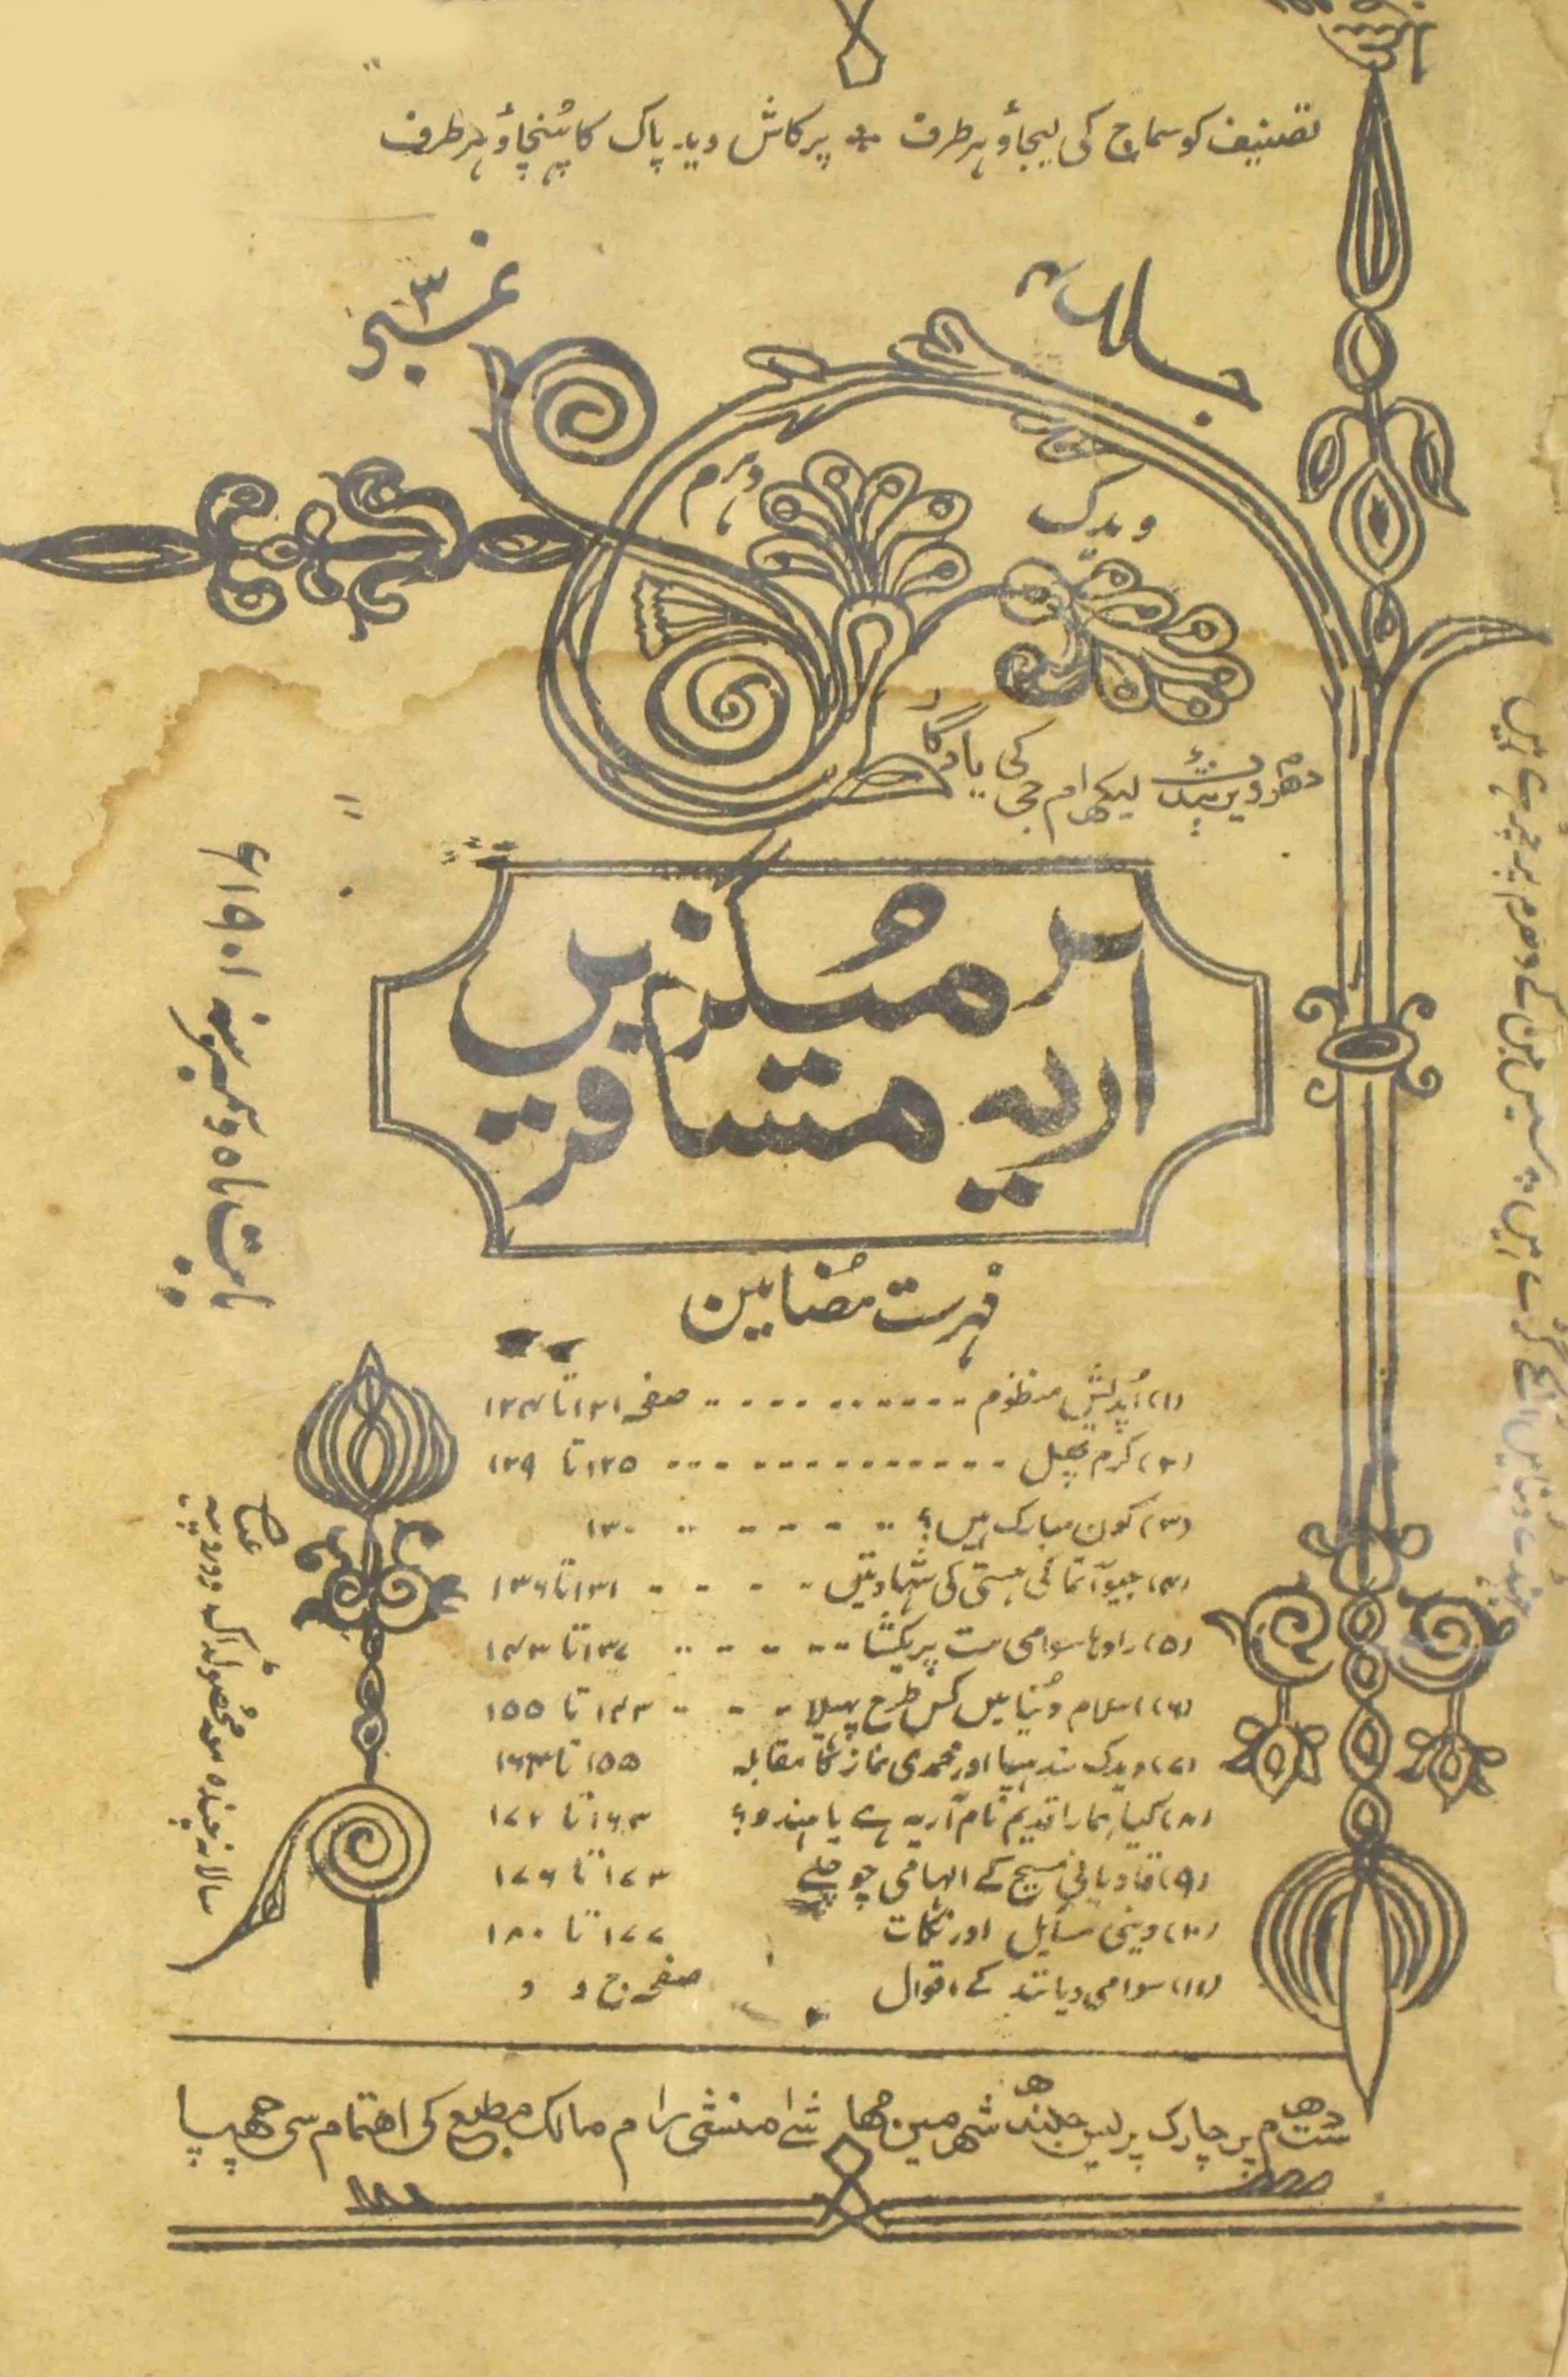 تصنیف کو سماج کی لیجاؤ ہر طرف * پرکاش وید پاک کا پہنچاؤ ہر طرف
جلد ۴
نمبر ۳
ویدک دہرم
دھرم ویر پنڈت لیکھرام جی کی یادگار
آریہ مسافر میگزین
بابت ماہ دسمبر سنہ ۱۹۰۱ء
فہرست مضامین
(۱) اُپدیش منظوم صفحہ ۱۲۱ تا ۱۲۴
(۲) کرم پھل ۱۲۵ تا ۱۲۹
(۳) کون مبارک ہیں؟ ۱۳۰
(۴) جیو آتما کی ہستی کی شہادتیں ۱۳۱ تا ۱۳۶
(۵) رادہا سوامی مت پریکشا ۱۳۷ تا ۱۴۳
(۶) اسلام دُنیا میں کس طرح پھیلا ۱۴۳ تا ۱۵۵
(۷) ویدک سندہیا اور محمدی نماز کا مقابلہ ۱۵۵ تا ۱۶۳
(۸) کیا ہمارا قدیم نام آریہ ہے یا ہندو؟ ۱۶۳ تا ۱۷۲
(۹) قادیانی مسیح کے الہامی چوچلے ۱۷۳ تا ۱۷۶
(۱۰) دینی مسایل اور نکات ۱۷۷ تا ۱۸۰
(۱۱) سوامی دیانند کے اقوال صفحہ ج و د
سالانہ چندہ معہ محصولڈاک دو روپیہ
ست دھرم پرچارک پریس جلندھر شہر میں مہاشے منشی رام مالک مطبع کی اھتمام سی چھپا